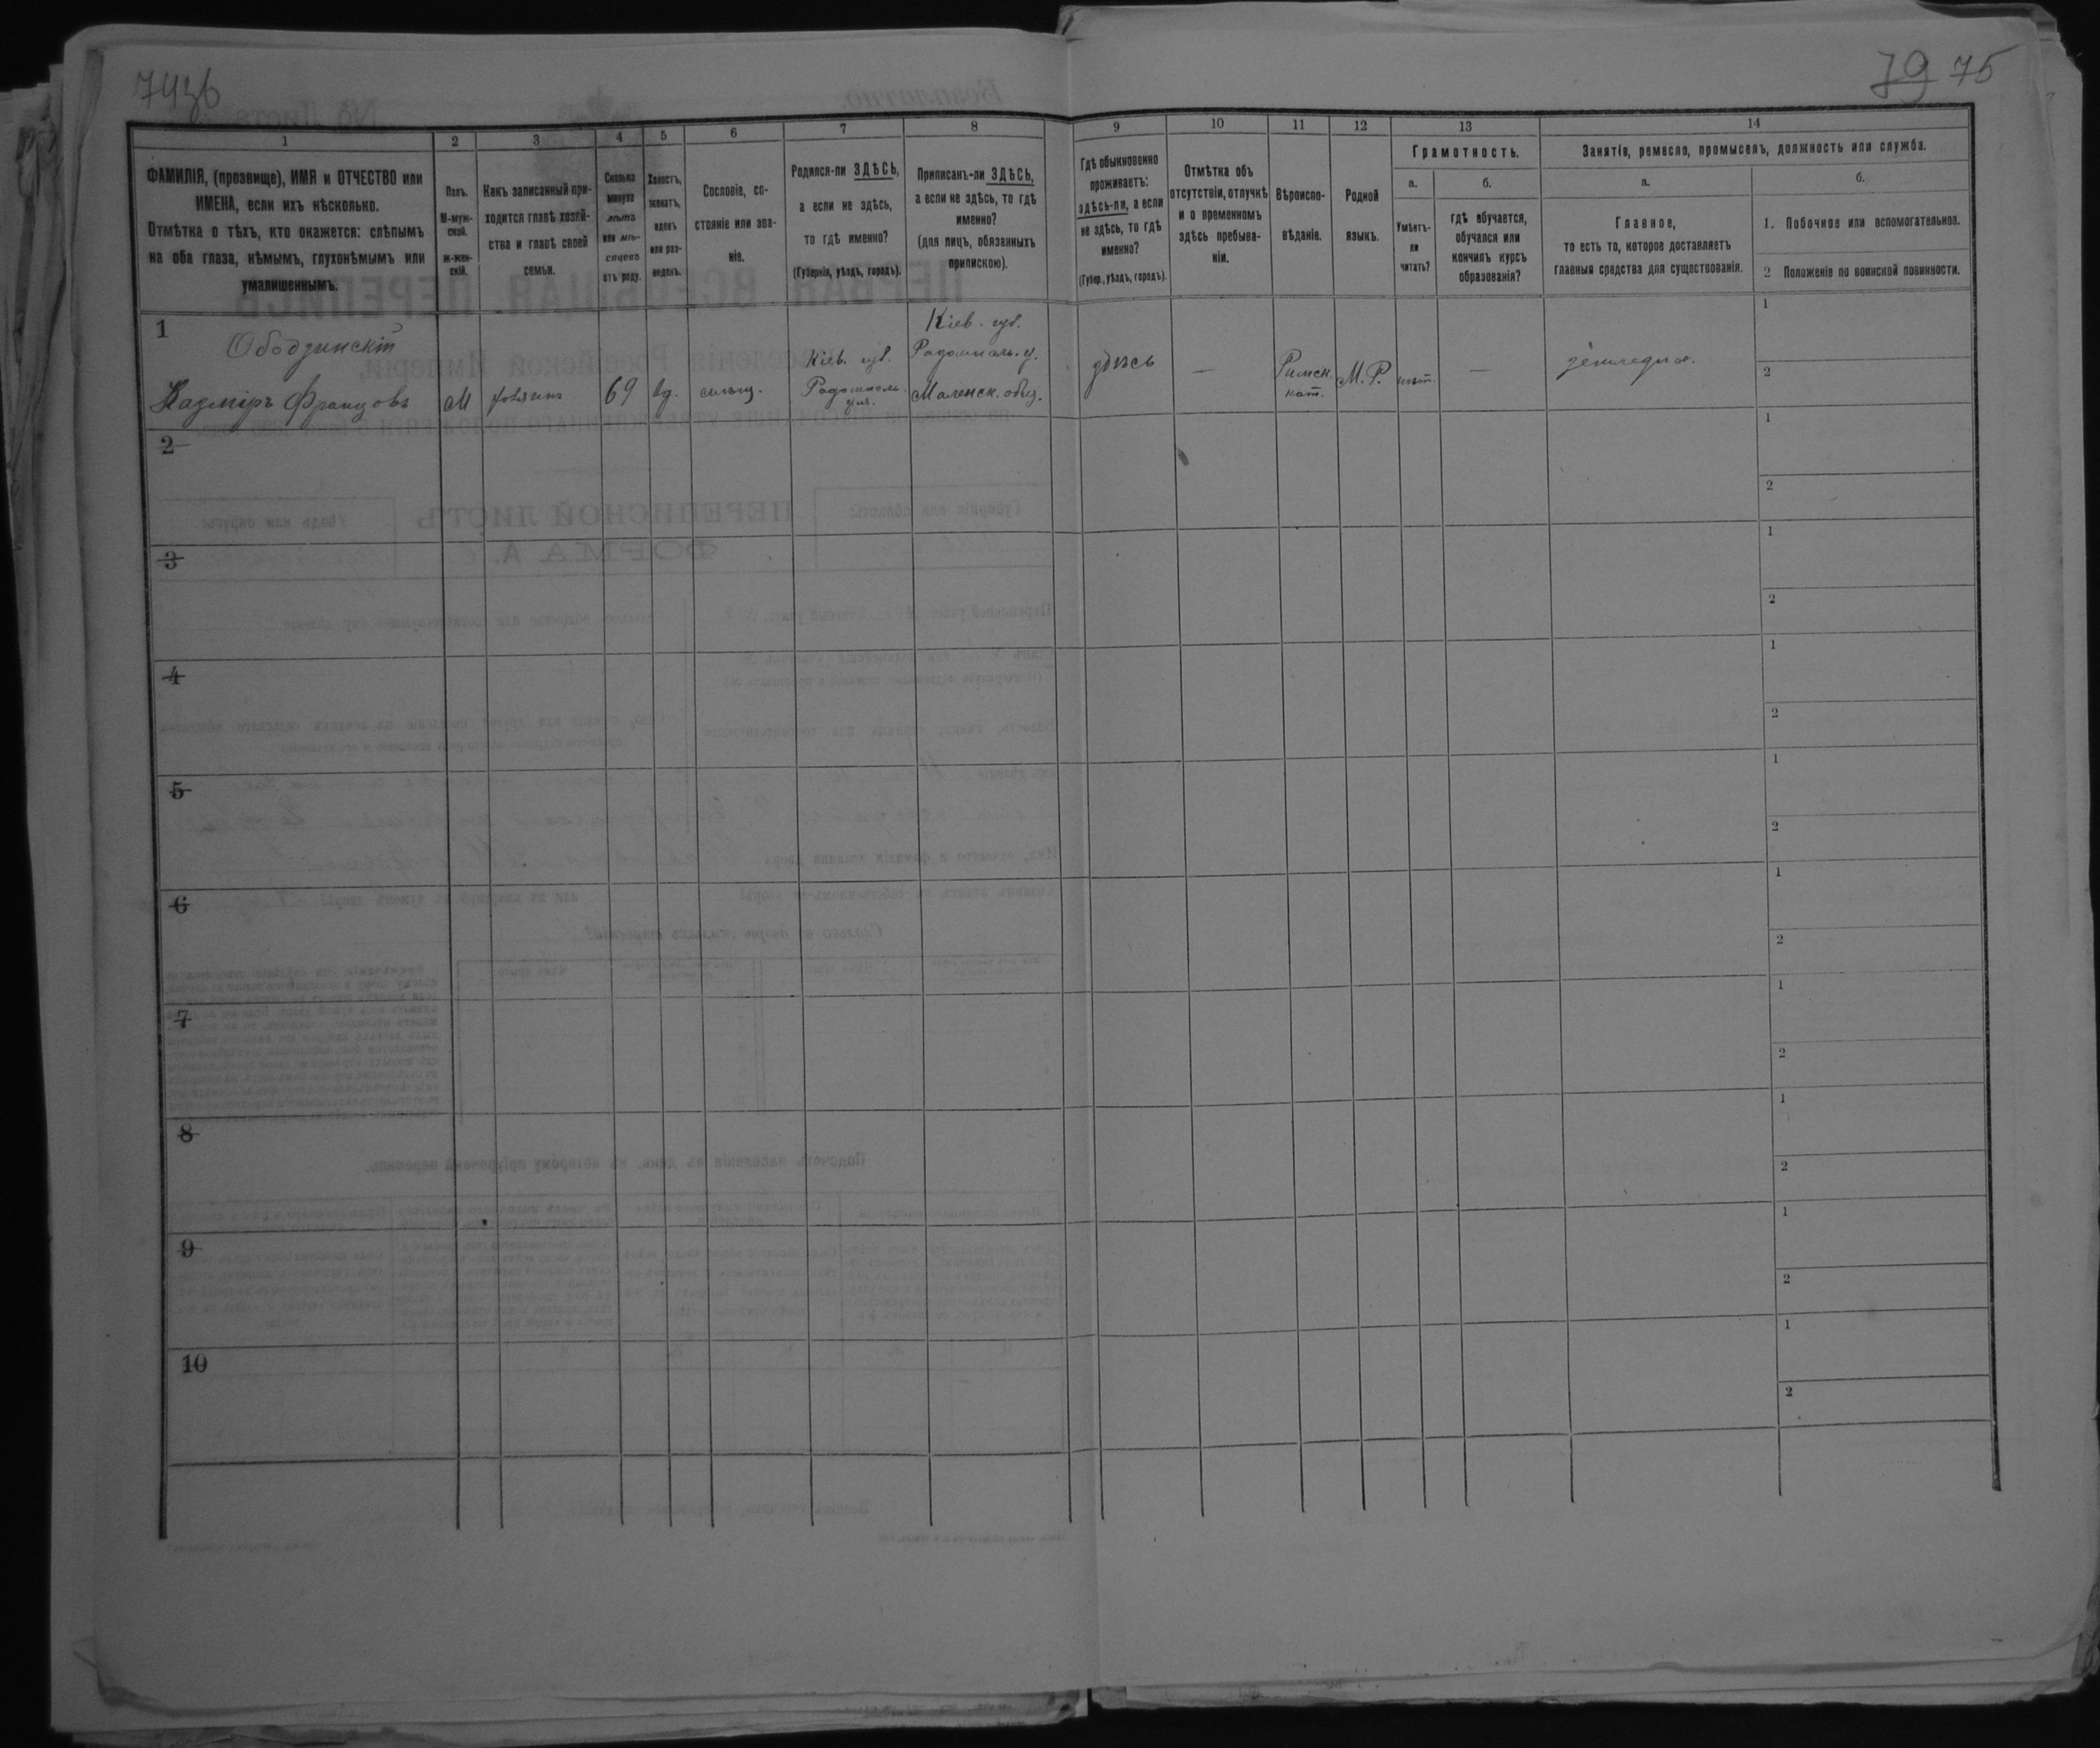 7436
79 75
1
2
3
4
5
6
7
8
9
10
11
12
13
14
ФАМИЛІЯ, (прозвище), ИМЯ и ОТЧЕСТВО или
ИМЕНА, если ихъ нѣсколько.
Отмѣтка о тѣхъ, кто окажется: слѣпымъ
на оба глаза, нѣмымъ, глухонѣмымъ или
умалишеннымъ.
Полъ.
М-муж-
ской.
ж-жен-
скій.
Какъ записанный при-
ходится главѣ хозяй-
ства и главѣ своей
семьи.
Сколько
минуло
лѣтъ
или мѣ-
сяцевъ
отъ роду.
Холостъ,
женатъ,
вдовъ
или раз-
веденъ.
Сословіе, со-
стояніе или зва-
ніе.
Родился-ли ЗДѢСЬ,
а если не здѣсь,
то гдѣ именно?
(Губернія, уѣздъ, городъ).
Приписанъ-ли ЗДѢСЬ,
а если не здѣсь, то гдѣ
именно?
(для лицъ, обязанныхъ
припискою).
Гдѣ обыкновенно
проживаетъ:
здѣсь-ли, а если
не здѣсь, то гдѣ
именно?
(Губер., уѣздъ, городъ).
Отмѣтка объ
отсутствіи, отлучкѣ
и о временномъ
здѣсь пребыва-
ніи.
Вѣроиспо-
вѣданіе.
Родной
языкъ.
Грамотность.
а.
Умѣетъ-
ли
читать?
б.
гдѣ обучается,
обучался или
кончилъ курсъ
образованія?
Занятія, ремесло, промыселъ, должность или служба.
а.
Главное,
то есть то, которое доставляетъ
главныя средства для существованія.
б.
1. Побочное или вспомогательное.
2 Положеніе по воинской повинности.
1
Ободзинскій
Казміръ Францовъ
М
хозяинъ
69
Вд.
Кіев. губ.
Радомысль.
Кіев. губ.
Радомысль. у.
Маленск. общ.
здѣсь
—
Римск.
кат.
М. Р.
нѣт.
—
земледѣл.
1
2
2
1
2
3
1
2
4
1
2
5
1
2
6
1
2
7
1
2
8
1
2
9
1
2
10
1
2